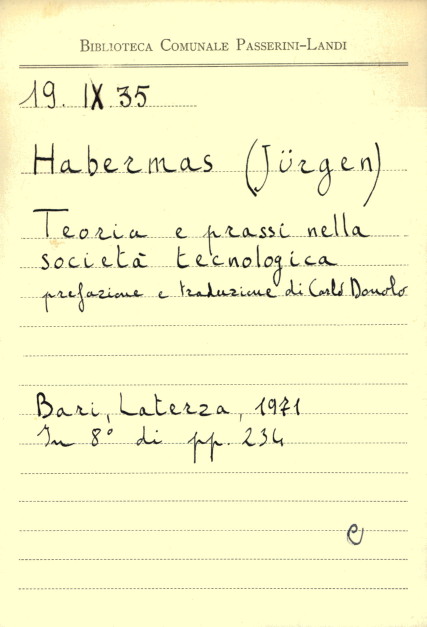 BIBLIOTECA COMUNALE PASSERINI–LANDI
19. IX 35
Habermas (Jürgen)
Teoria e prassi nella
società tecnologica
prefazione e traduzione di Carlo Donolo
Bari, Laterza, 1971
In 8° di pp. 234
e